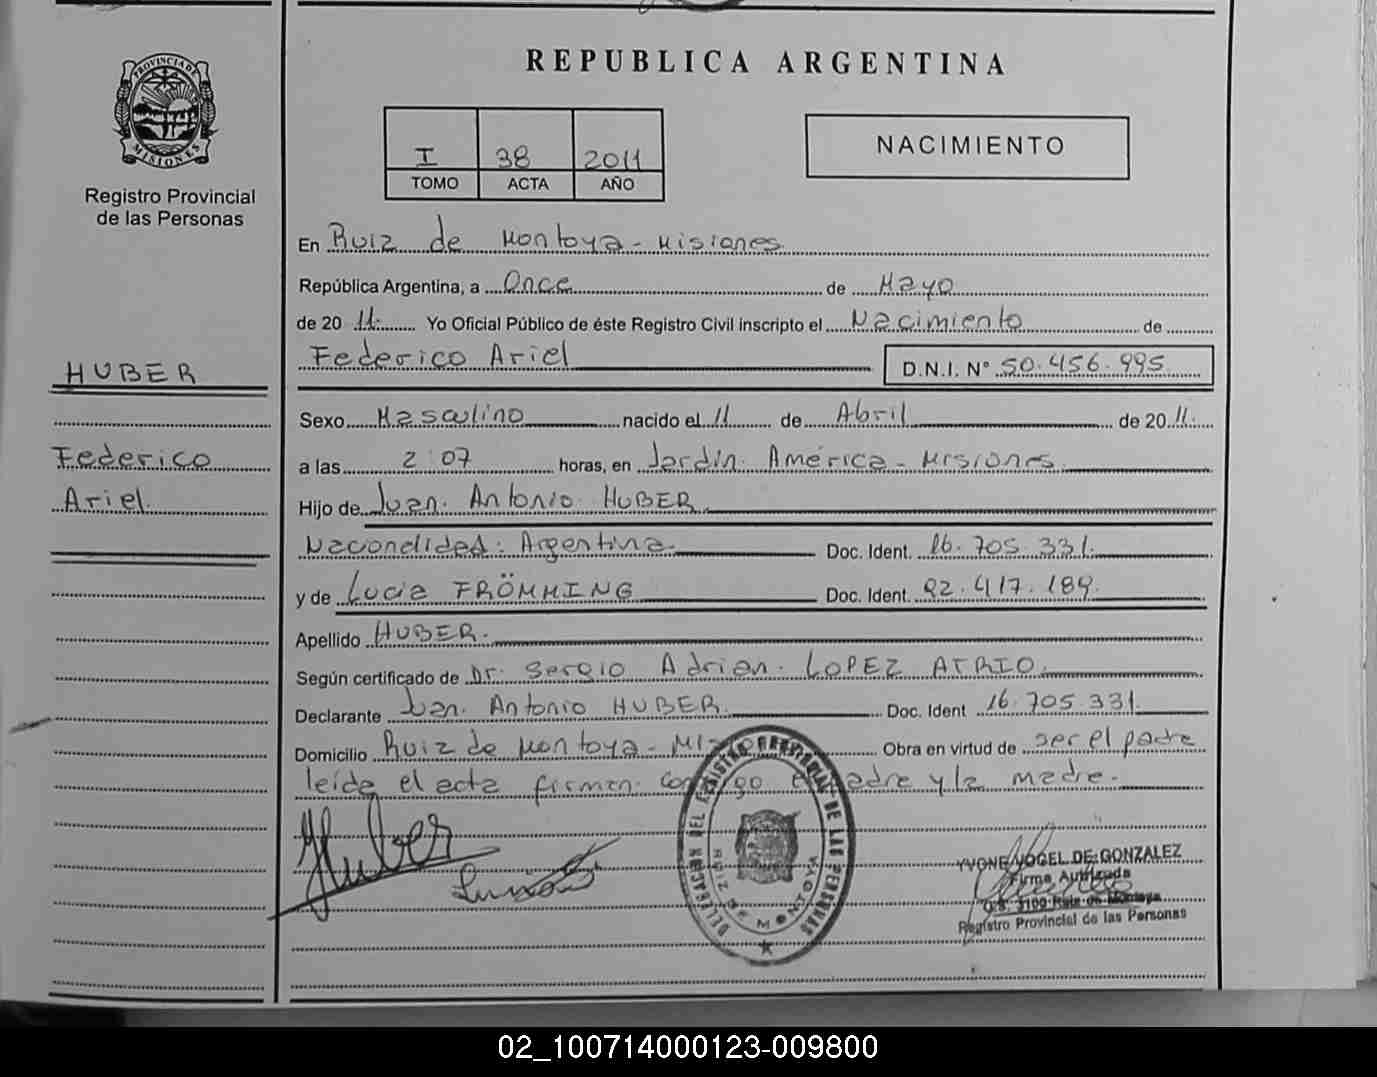 REPUBLICA ARGENTINA
PROVINCIA DE MISIONES
Registro Provincial
de las Personas
I 38 2011
TOMO ACTA AÑO
NACIMIENTO
En Ruiz de Montoya - Misiones
República Argentina, a Once de Mayo
de 20 11. Yo Oficial Público de éste Registro Civil inscripto el Nacimiento de
Federico Ariel D.N.I. N° 50.456.995
HUBER
Federico
Ariel.
Sexo Masculino nacido el 11 de Abril de 20 11.
a las 2:07 horas, en Jardín América - Misiones.
Hijo de Juan Antonio HUBER.
Nacionalidad: Argentina. Doc. Ident. 16.705.331.
y de Lucia FRÖMMING Doc. Ident. 22.417.189.
Apellido HUBER.
Según certificado de Dr. Sergio Adrian LOPEZ ATRIO.
Declarante Juan Antonio HUBER. Doc. Ident 16.705.331.
Domicilio Ruiz de Montoya - Obra en virtud de ser el padre
leída el acta firman conmigo el padre y la madre.
Huber
DELEGACION DEL REGISTRO PROVINCIAL DE LAS PERSONAS
RUIZ DE MONTOYA
YVONE VOGEL DE GONZALEZ
Firma Autorizada
O.S. 3100 Ruiz de Montoya
Registro Provincial de las Personas
02_100714000123-009800